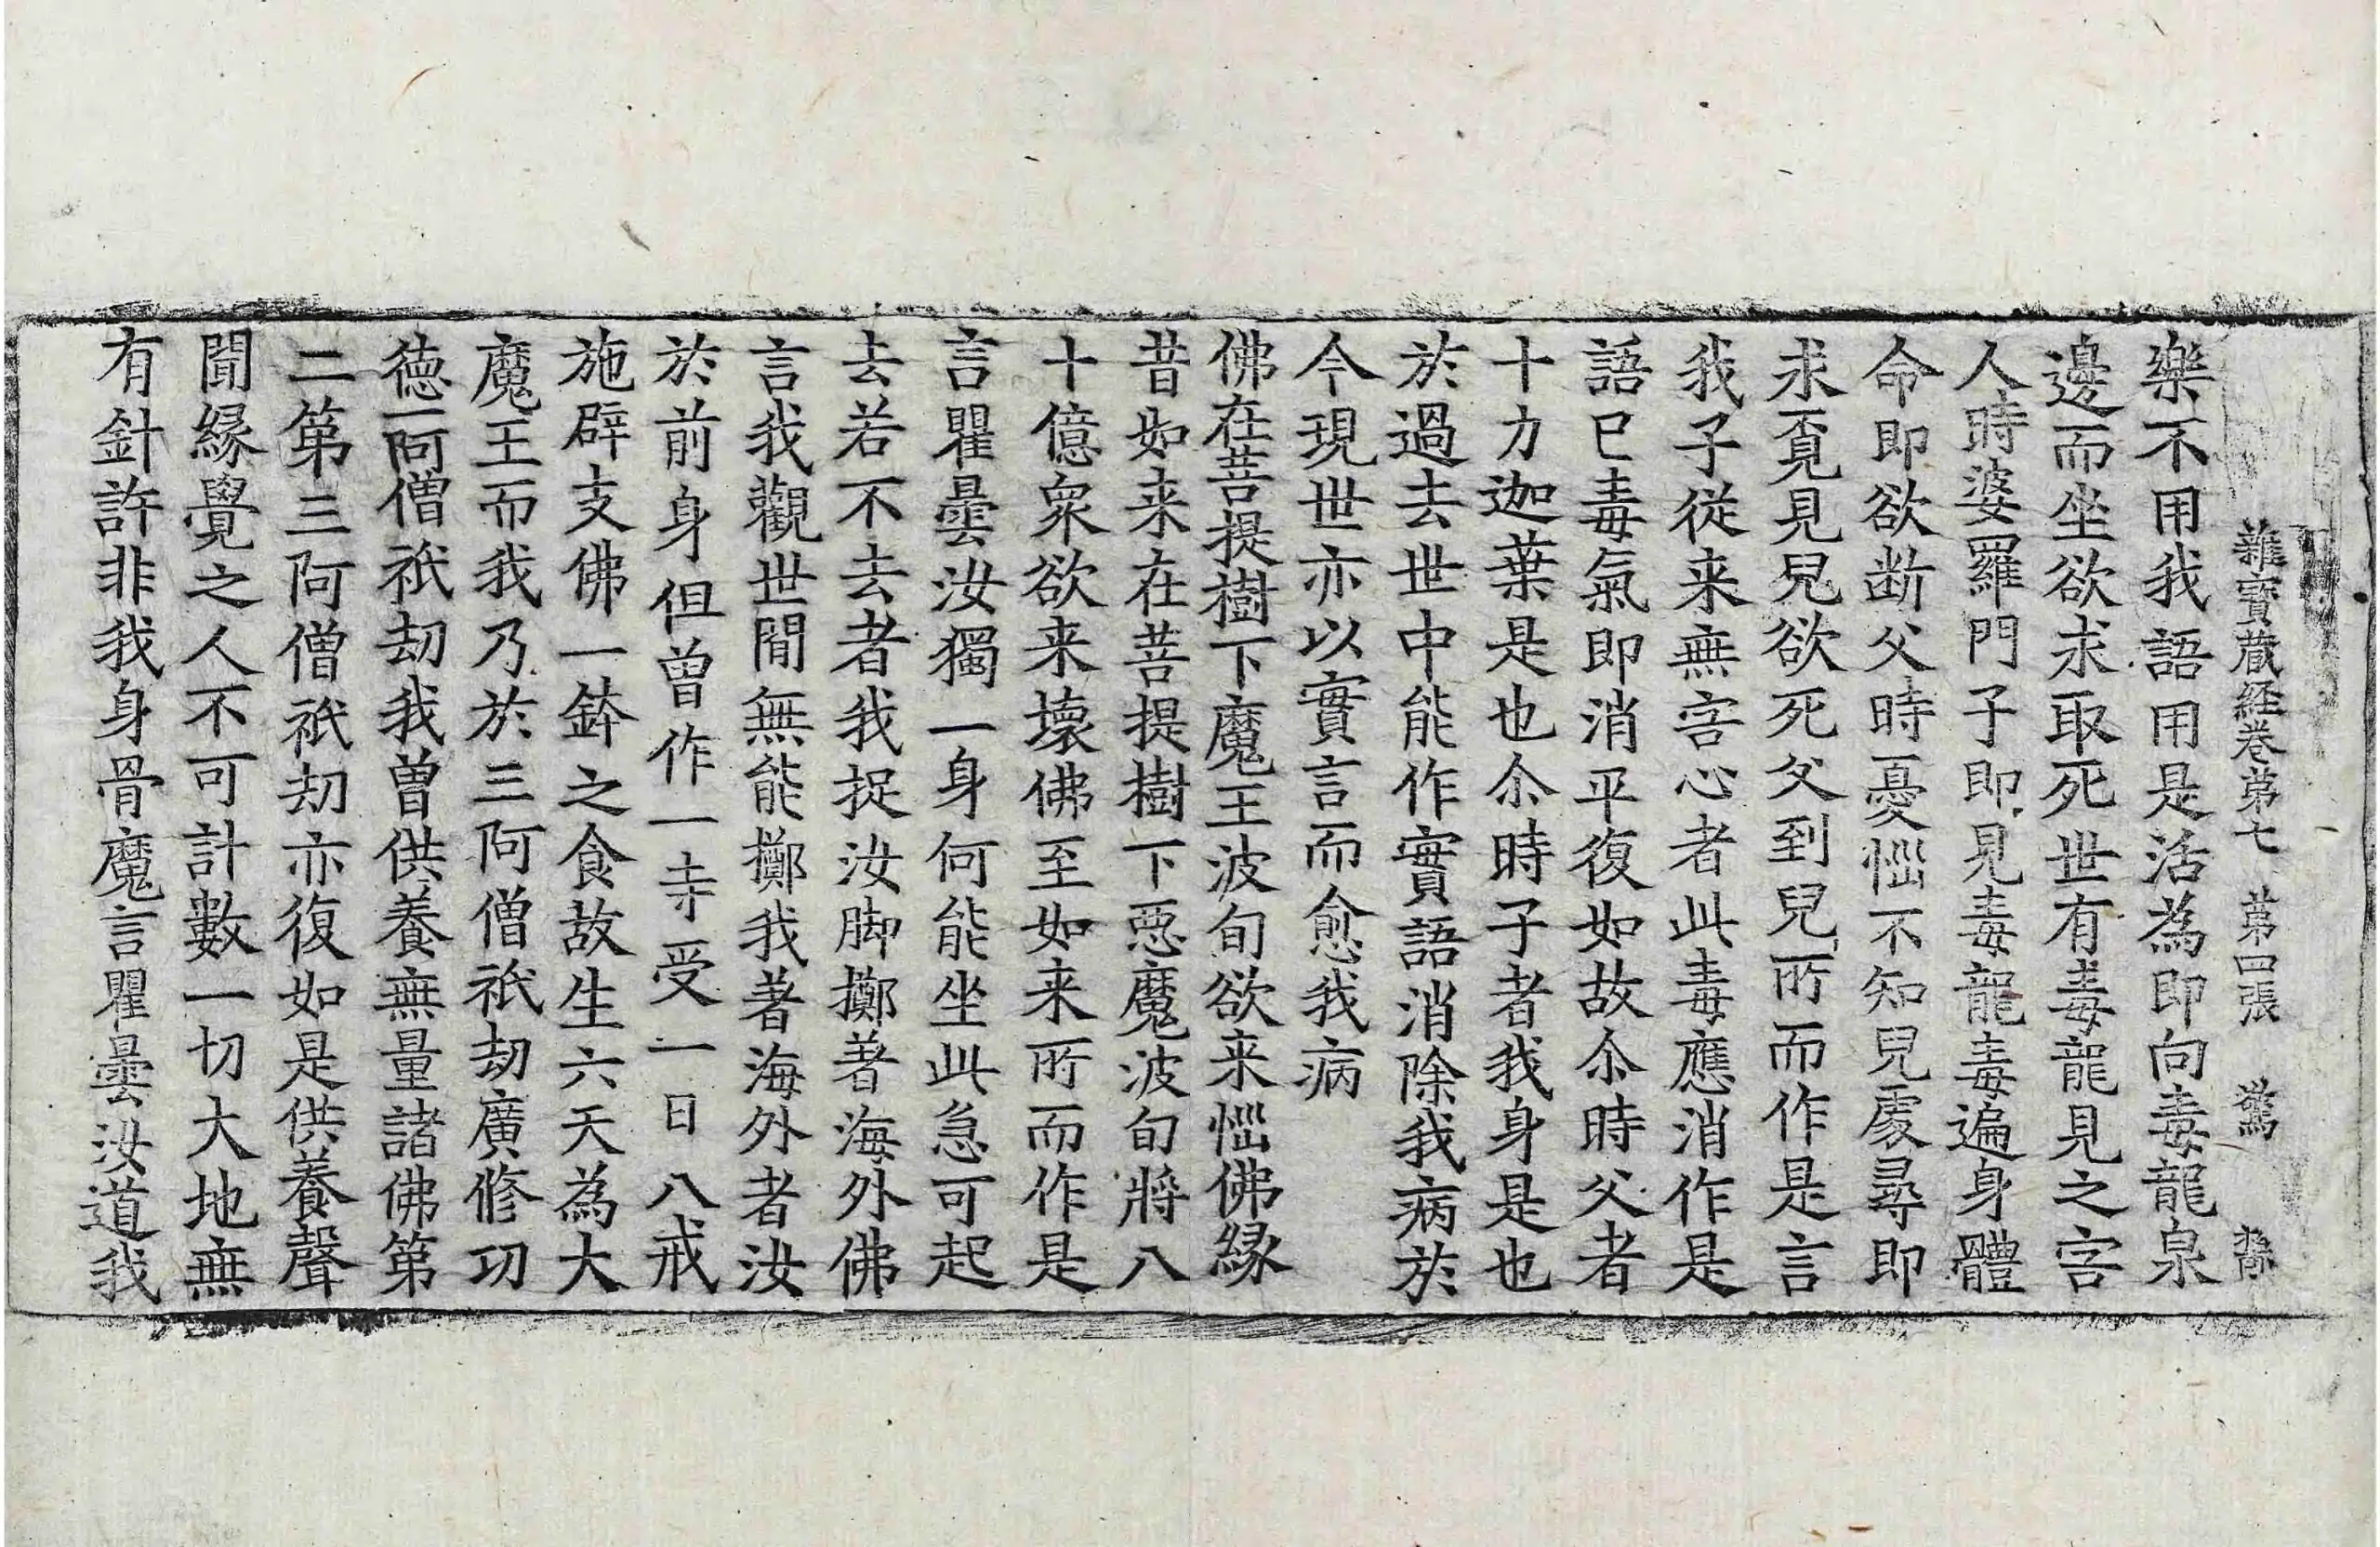 雜寶蔵経卷苐七 苐四張 驚
樂不用我語用是活為即向毒龍泉
邊而坐欲求取死世有毒龍見之害
人時婆羅門子即見毒龍毒遍身體
命即欲断父時憂惱不知兒處尋即
求覔見兒欲死父到兒所而作是言
我子從来無害心者此毒應消作是
語已毒氣即消平復如故尒時父者
十力迦葉是也尒時子者我身是也
於過去世中能作實語消除我病於
今現世亦以實言而愈我病
佛在菩提樹下魔王波旬欲来惱佛緣
昔如来在菩提樹下惡魔波旬將八
十億衆欲来壞佛至如来所而作是
言瞿曇汝獨一身何能坐此急可起
去若不去者我捉汝脚擲著海外佛
言我觀世間無能擲我著海外者汝
於前身但曾作一寺受一日八戒
施辟支佛一鉢之食故生六天為大
魔王而我乃於三阿僧祇劫廣修功
德一阿僧祇劫我曾供養無量諸佛第
二第三阿僧祇劫亦復如是供養聲
聞緣覺之人不可計數一切大地無
有針許非我身骨魔言瞿曇汝道我